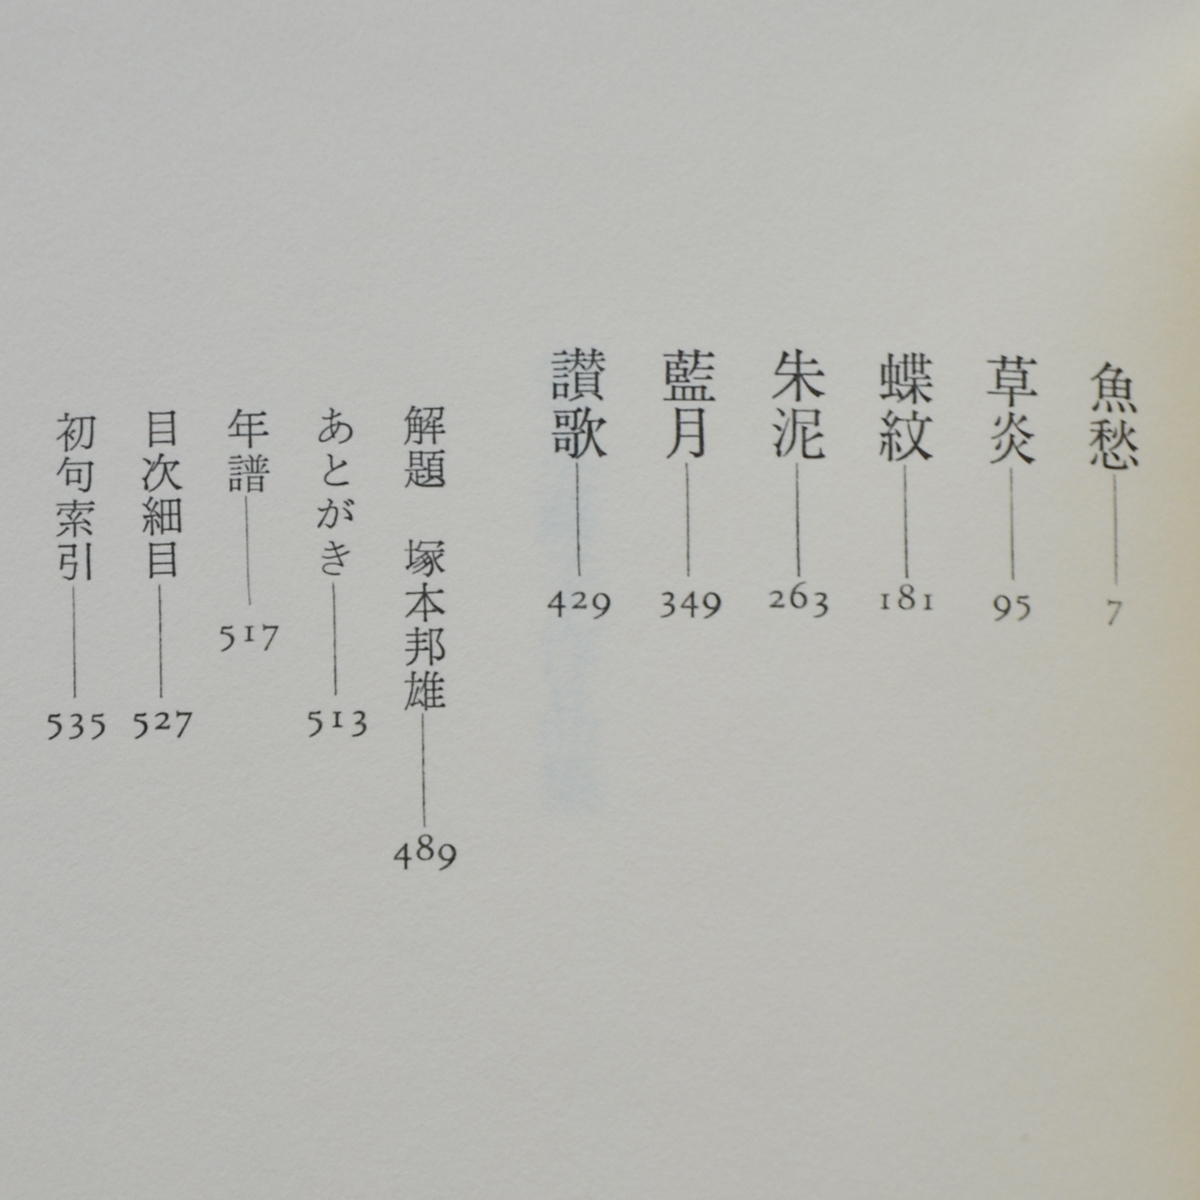 魚愁——7
草炎——95
蝶紋——181
朱泥——263
藍月——349
讃歌——429
解題 塚本邦雄——489
あとがき——513
年譜——517
目次細目——527
初句索引——535